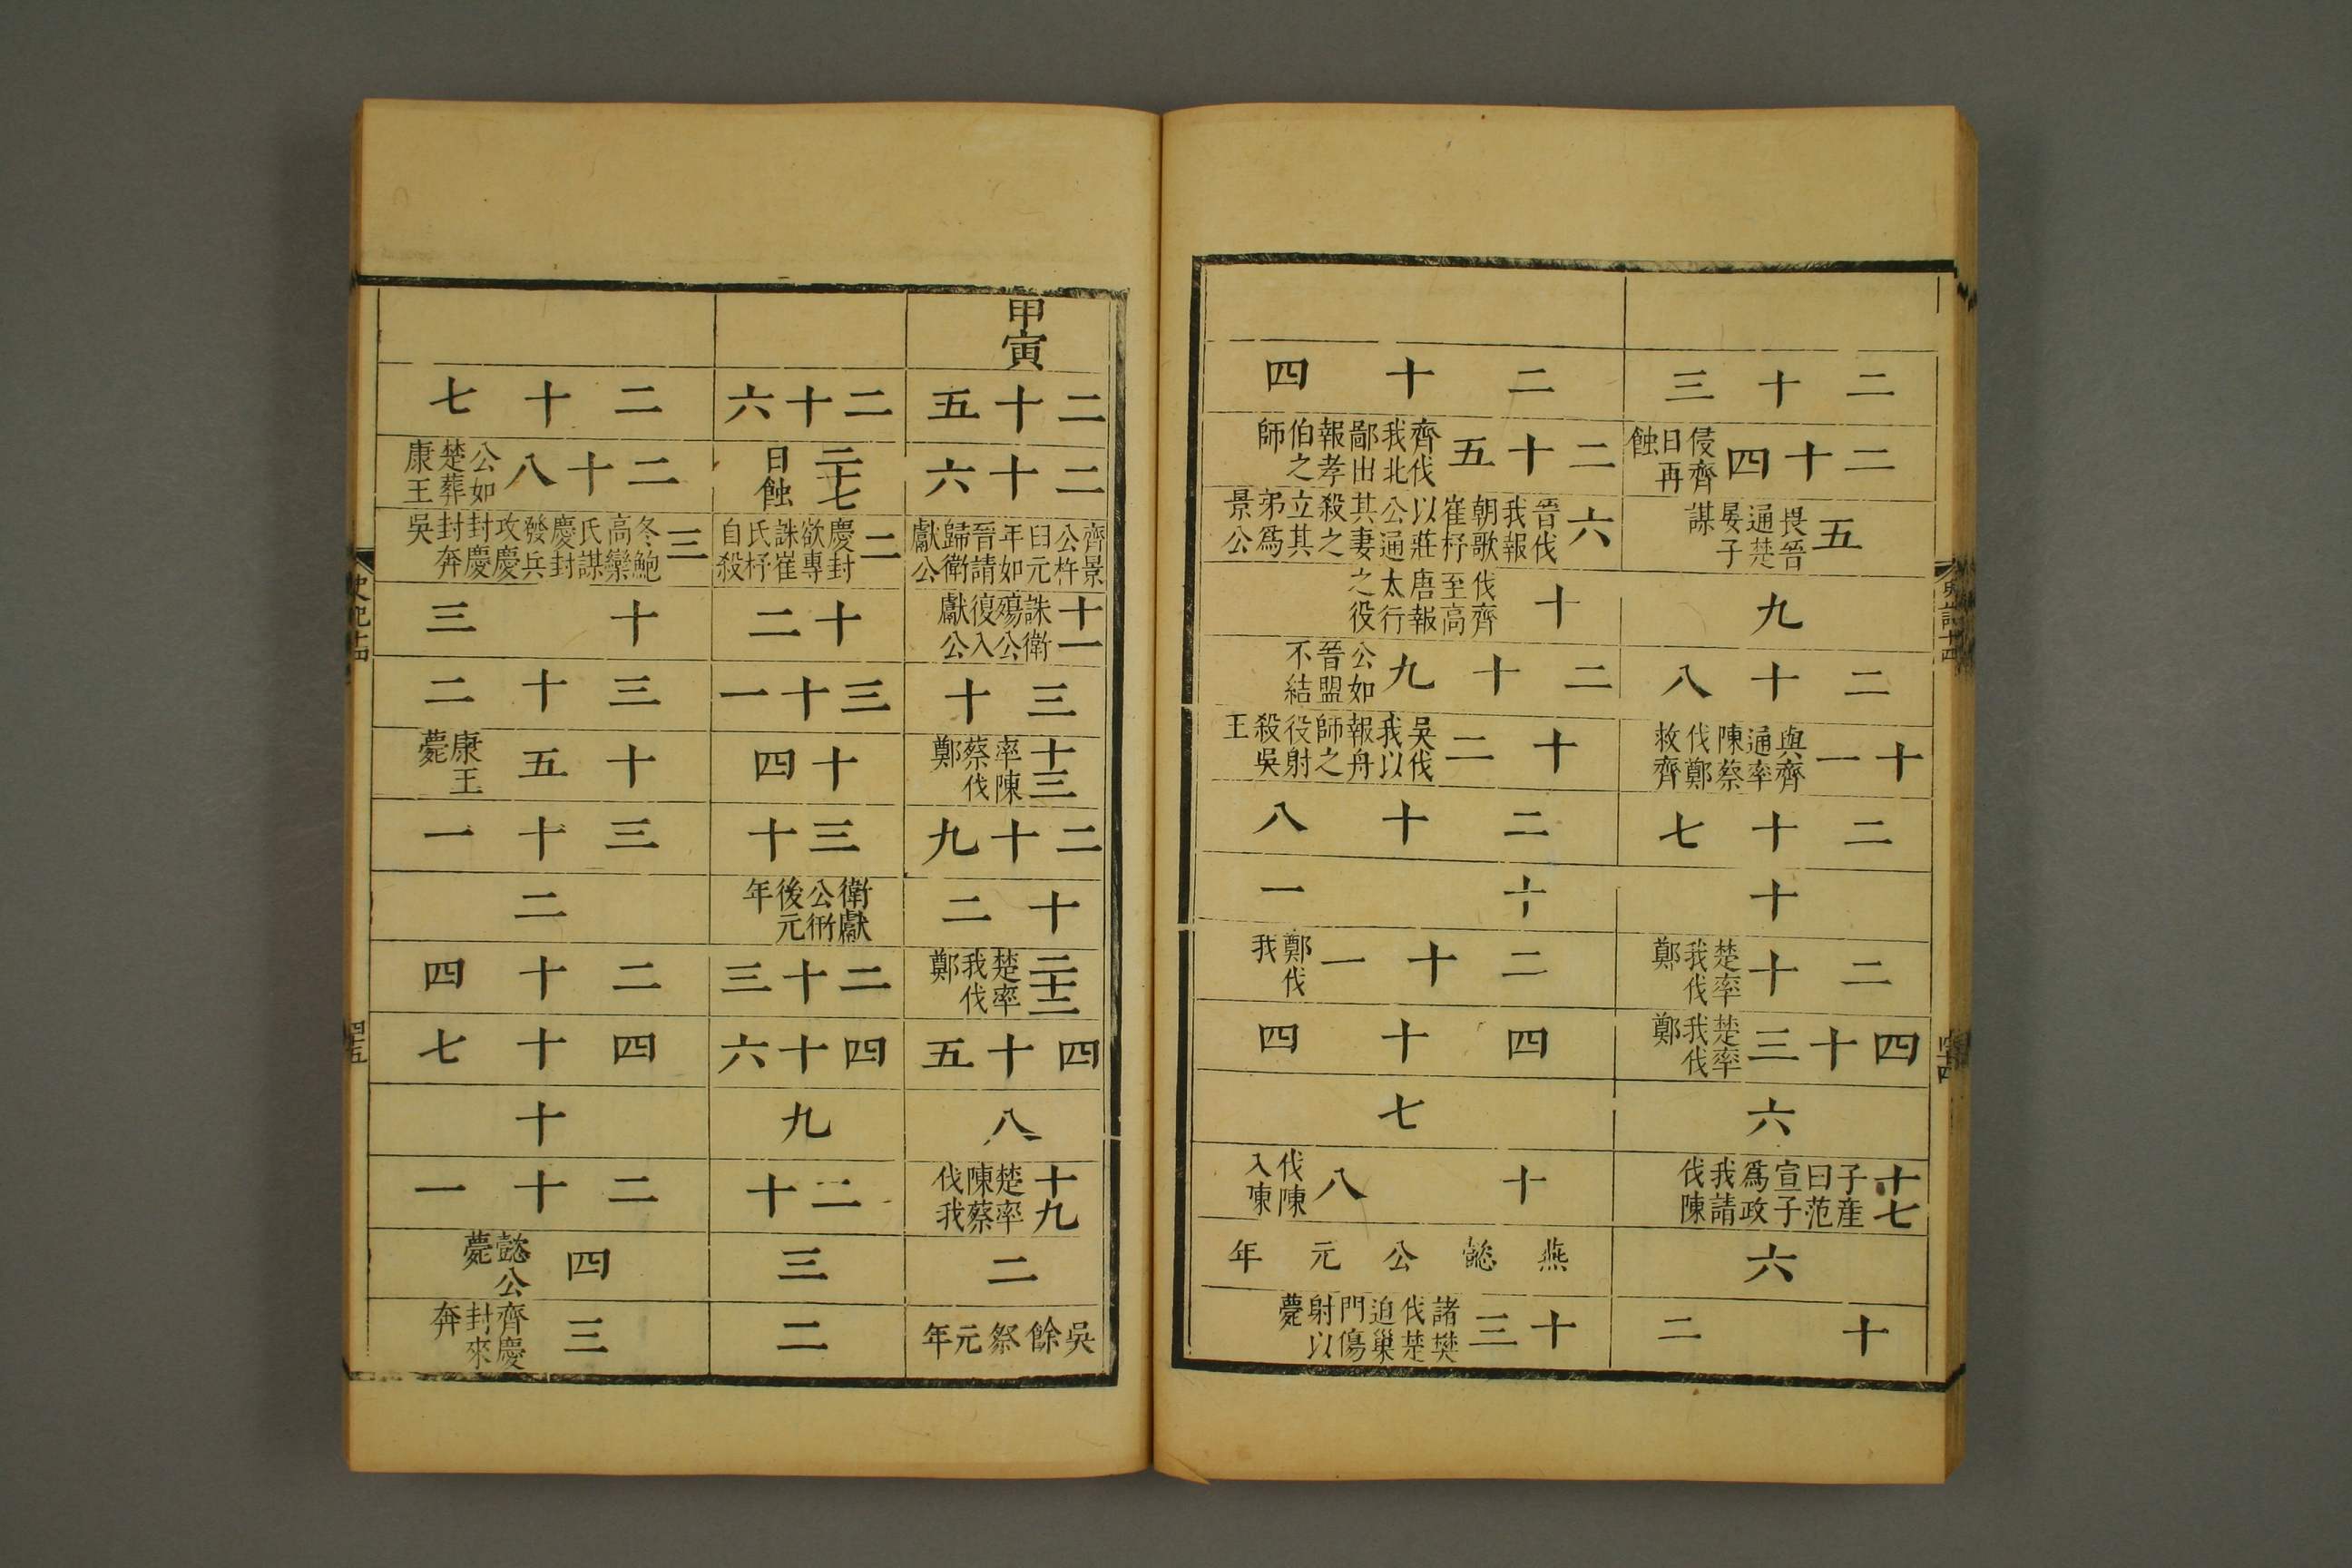 二十三
二十四 侵齊日再蝕
五 畏晉通楚晏子謀
九
二十八
十一 與齊通率陳蔡伐鄭救齊
二十七
十
二十 楚率我伐鄭
四十三 楚率我伐鄭
六
十七 子產曰范宣子爲政我請伐陳
六
十二
二十四
二十五 齊伐我北鄙出報孝伯之師
六 晉伐我報朝歌崔杼以莊公通其妻殺之立其弟爲景公
十 伐齊至高唐報太行之役
二十九 公如晉盟不結
十二 吳伐我以報舟師之役射殺吳王
二十八
十一
二十一 鄭伐我
四十四
七
十八 伐陳入陳
燕懿公元年
十三 諸樊伐楚迫巢門傷射以薨
甲寅
二十五
二十六
齊景公杵臼元年如晉請歸衛獻公
十一 誅衛殤公復入獻公
三十
十三 率陳蔡伐鄭
二十九
十二
二十二 楚率我伐鄭
四十五
八
十九 楚率陳蔡伐我
二
吳餘祭元年
二十六
二十七 日蝕
二 慶封欲專誅崔氏杼自殺
十二
三十一
十四
三十
衛獻公衎後元年
二十三
四十六
九
二十
三
二
二十七
二十八 公如楚葬康王
三 冬鮑高欒氏謀慶封發兵攻慶封慶封奔吳
十三
三十二
十五 康王薨
三十一
二
二十四
四十七
十
二十一
四 懿公薨
三 齊慶封來奔
史記十四
四十五